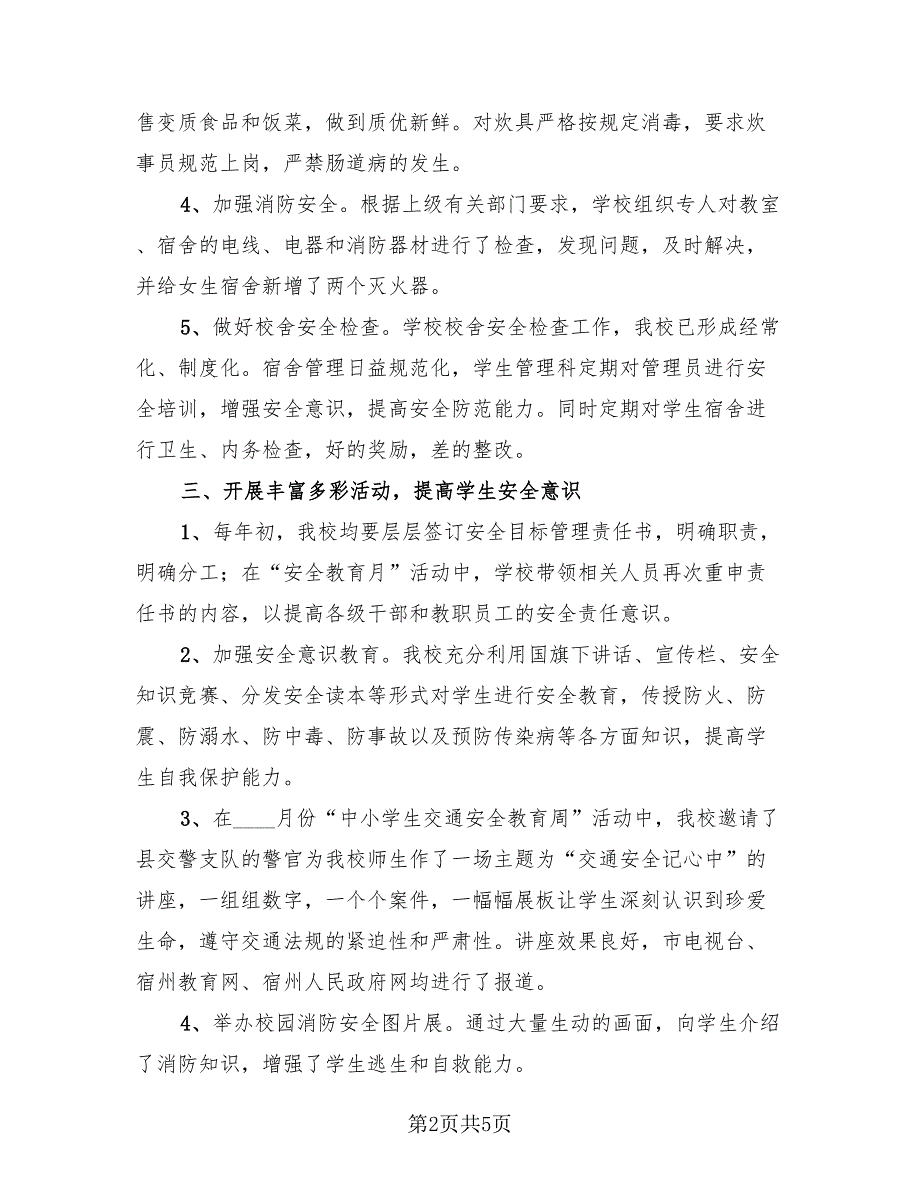 售变质食品和饭菜，做到质优新鲜。对炊具严格按规定消毒，要求炊
事员规范上岗，严禁肠道病的发生。
4、加强消防安全。根据上级有关部门要求，学校组织专人对教室
、宿舍的电线、电器和消防器材进行了检查，发现问题，及时解决，
并给女生宿舍新增了两个灭火器。
5、做好校舍安全检查。学校校舍安全检查工作，我校已形成经常
化、制度化。宿舍管理日益规范化，学生管理科定期对管理员进行安
全培训，增强安全意识，提高安全防范能力。同时定期对学生宿舍进
行卫生、内务检查，好的奖励，差的整改。
三、开展丰富多彩活动，提高学生安全意识
1、每年初，我校均要层层签订安全目标管理责任书，明确职责，
明确分工；在“安全教育月”活动中，学校带领相关人员再次重申责
任书的内容，以提高各级干部和教职员工的安全责任意识。
2、加强安全意识教育。我校充分利用国旗下讲话、宣传栏、安全
知识竞赛、分发安全读本等形式对学生进行安全教育，传授防火、防
震、防溺水、防中毒、防事故以及预防传染病等各方面知识，提高学
生自我保护能力。
3、在____月份“中小学生交通安全教育周”活动中，我校邀请了
县交警支队的警官为我校师生作了一场主题为“交通安全记心中”的
讲座，一组组数字，一个个案件，一幅幅展板让学生深刻认识到珍爱
生命，遵守交通法规的紧迫性和严肃性。讲座效果良好，市电视台、
宿州教育网、宿州人民政府网均进行了报道。
4、举办校园消防安全图片展。通过大量生动的画面，向学生介绍
了消防知识，增强了学生逃生和自救能力。
第2页共5页